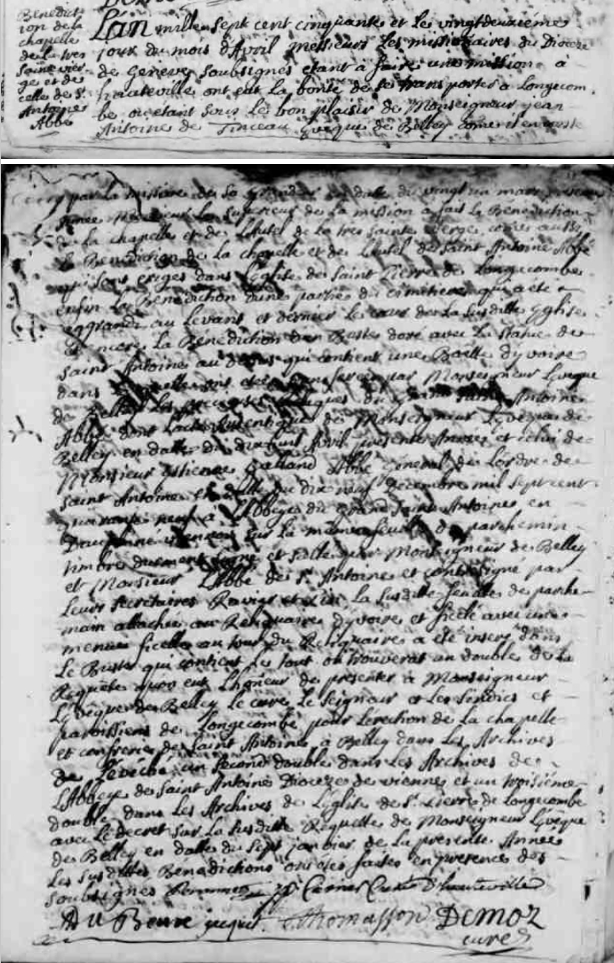 Benedict
ion de la
chapelle
de la tres
Sainte vier
ge et de
celle de St
Antoine
Abbé
L'an mille sept cent cinquante et les vingtdeuxiéme
jour du mois d'Avril Messieurs Les missionaires du Dioceze
de Geneve soubsignes etant a faire une mission a
hauteville ont eut la bonté de se transporter a Longecom
be ou etant sous les bon plaisir de Monseigneur jean
Antoine de Tinceau Eveque de Belley come il en conste
par la missive de sa Grandeur en datte du vingt un mars
année Monsieur Le Superieur de la mission a fait la Benediction
de la chapelle et de L'autel de la tres Sainte Vierge, comme aussi
la Benediction de la chapelle et de L'autel de Saint Antoine Abbé
qui sont eriges dans L'eglise de Saint Pierre de Longecombe
enfin la Benediction d'une partie du cimetiere qui a été
aggrandi au Levant et dernier le cœur de la susditte Eglise
encore la Benediction d'un Buste doré avec la statue de
Saint Antoine au dessus qui contient une Boëtte d'yvoire
dans par Monseigneur Eveque
de Belley Les reliques du Grand Saint Antoine
Abbé dont L'acte autentique de Monseigneur L'eveque de
Belley en datte du dixhuit Avril presente Année et celui de
Monsieur Ethienne Galland Abbé General de L'ordre de
Saint Antoine en datte du dix neuf Decembre mil sept cent
quarante neuf a L'Abbeye du Grand Saint Antoine en
Dauphiné sur la meme feuille de parchemin
timbre duement signé et scellé par Monseigneur de Belley
et Monsieur L'Abbé de St Antoine et contresigné par
Leurs Secretaires la susditte feuille de parche
main attachée au Reliquaire d'yvoire et ficelé avec une
menue ficelle au tour du Reliquaire a eté inseré dans
Le Buste qui contient Le tout on trouverat un double de la
Requete qu'on eut L'honeur de presenter à Monseigneur
L'Eveque de Belley le curé Le Seigneur et Les Sindics et
parroissiens de Longecombe pour L'erection de La chapelle
et confrerie de Saint Antoine à Belley dans Les Archives
de L'eveché, un second double dans Les Archives de
L'Abbeye de Saint Antoine Dioceze de vienne et un troisiéme
double dans Les Archives de L'eglise de St Pierre de Longecombe
avec Le decret sur la susditte Requette de Monseigneur Eveque
de Belley en datte du sept janvier de La presente Année
Les susdittes Benedictions ont etés faites en presence des
soubsignes Carrier Curé D'hauteville
Thomasson Demoz
curé